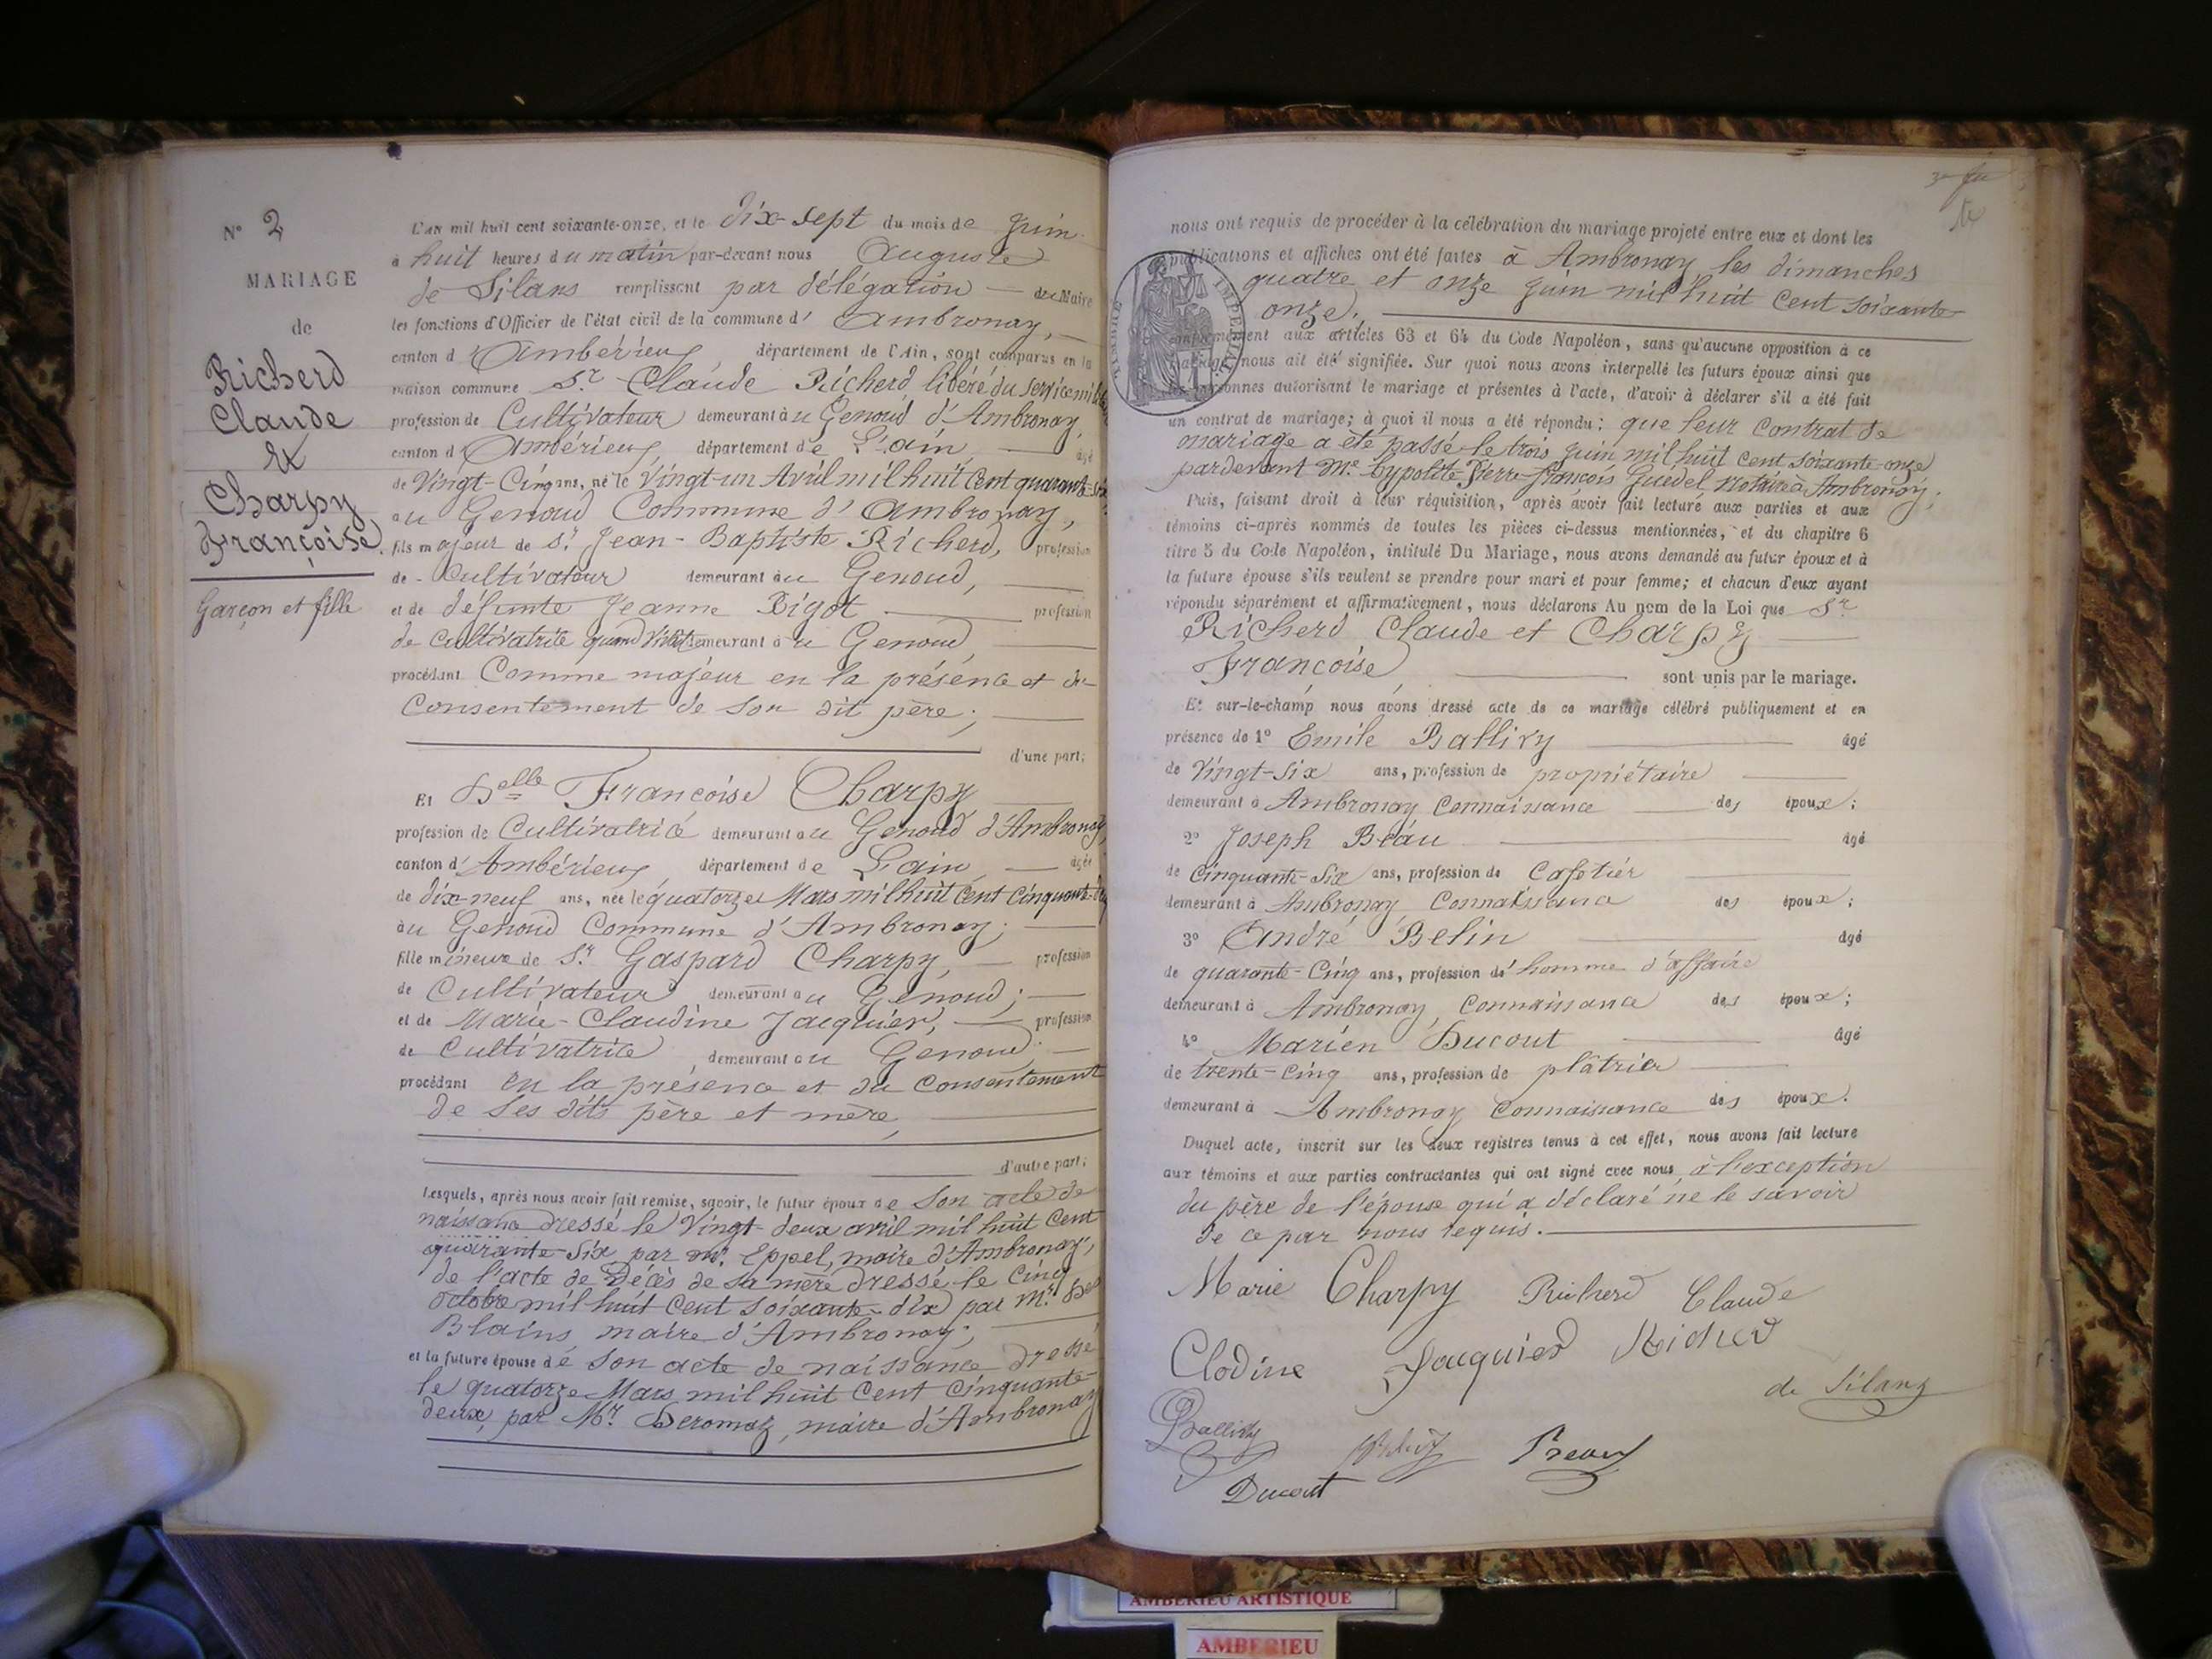 N° 2
MARIAGE
de
Richerd
Claude
&
Charpy
Françoise
Garçon et fille
L'an mil huit cent soixante-onze, et le dix-sept du mois de juin
à huit heures du matin par-devant nous Auguste
de Silans remplissant par délégation du Maire
les fonctions d'Officier de l'état civil de la commune d' Ambronay,
canton d'Ambérieu, département de l'Ain, sont comparus en la
maison commune Sr Claude Richerd, libéré du service
profession de Cultivateur demeurant au Genoud d'Ambronay,
canton d'Ambérieu, département de L'ain, âgé
de Vingt-Cinq ans, né le Vingt-un Avril mil huit Cent quarante-six
au Genoud Commune d'Ambronay,
fils majeur de Sr Jean-Baptiste Richerd, profession
de Cultivateur demeurant au Genoud,
et de défunte Jeanne Bigot profession
de cultivatrice quand vivait demeurant au Genoud,
procédant Comme majeur en la présence et du
Consentement de son dit père;
d'une part;
Et Delle Françoise Charpy
profession de Cultivatrice demeurant au Genoud d'Ambronay,
canton d'Ambérieu, département de L'ain, âgée
de dix-neuf ans, née le quatorze Mars mil huit Cent Cinquante-deux
au Genoud Commune d'Ambronay;
fille mineure de Sr Gaspard Charpy, profession
de Cultivateur demeurant au Genoud;
et de Marie-Claudine Jacquier, profession
de Cultivatrice demeurant au Genoud;
procédant en la présence et du Consentement
de ses dits père et mère,
d'autre part;
Lesquels, après nous avoir fait remise, savoir, le futur époux de son acte de
naissance dressé le Vingt-deux avril mil huit Cent
quarante-six par Mr. Eppel, maire d'Ambronay,
de l'acte de Décès de sa mère dressé le cinq
octobre mil huit Cent soixante-dix par Mr
Blains, maire d'Ambronay;
et la future épouse de son acte de naissance dressé
le quatorze Mars mil huit Cent Cinquante-
deux, par Mr. Deromaz, maire d'Ambronay
nous ont requis de procéder à la célébration du mariage projeté entre eux et dont les
publications et affiches ont été faites à Ambronay les dimanches
quatre et onze juin mil huit cent soixante
onze,
conformément aux articles 63 et 64 du Code Napoléon, sans qu'aucune opposition à ce
mariage nous ait été signifiée. Sur quoi nous avons interpellé les futurs époux ainsi que
les personnes autorisant le mariage et présentes à l'acte, d'avoir à déclarer s'il a été fait
un contrat de mariage; à quoi il nous a été répondu: que leur Contrat de
mariage a été passé le trois juin mil huit Cent soixante-onze
pardevant Me hypolite-Pierre-François Guédel, Notaire à Ambronay;
Puis, faisant droit à leur réquisition, après avoir fait lecture aux parties et aux
témoins ci-après nommés de toutes les pièces ci-dessus mentionnées, et du chapitre 6
titre 5 du Code Napoléon, intitulé Du Mariage, nous avons demandé au futur époux et à
la future épouse s'ils veulent se prendre pour mari et pour femme; et chacun d'eux ayant
répondu séparément et affirmativement, nous déclarons Au nom de la Loi que Sr
Richerd Claude et Charpy
Françoise
sont unis par le mariage.
Et sur-le-champ nous avons dressé acte de ce mariage célébré publiquement et en
présence de 1° Emile Ballivy âgé
de Vingt-six ans, profession de propriétaire
demeurant à Ambronay, Connaissance des époux;
2° Joseph Bréau âgé
de Cinquante-Six ans, profession de Cafetier
demeurant à Ambronay Connaissance des époux;
3° André Belin âgé
de quarante-Cinq ans, profession d'homme d'affaire
demeurant à Ambronay, Connaissance des époux;
4° Marien Ducout âgé
de trente-Cinq ans, profession de plâtrier
demeurant à Ambronay, Connaissance des époux.
Duquel acte, inscrit sur les deux registres tenus à cet effet, nous avons fait lecture
aux témoins et aux parties contractantes qui ont signé avec nous, à l'exception
du père de l'épouse qui a déclaré ne le savoir
de ce par nous requis.
Marie Charpy Richerd Claude
Clodine Jacquier Richerd
de Silans
Ballivy
Ducout
TIMBRE IMPERIAL
AMBERIEU ARTISTIQUE
AMBERIEU